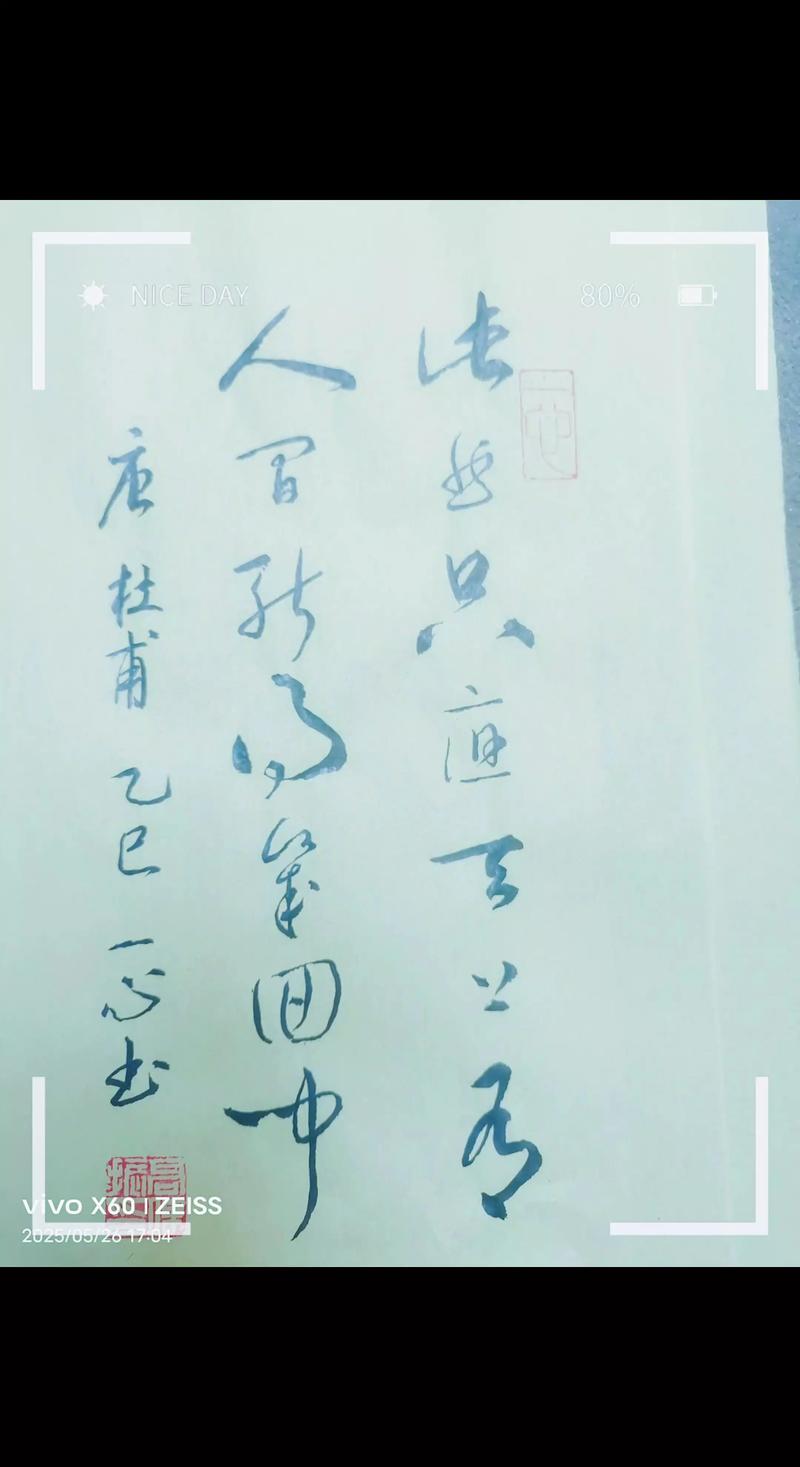 NICE DAY
80%
此曲只應天上有
人間能得幾回聞
唐 杜甫 乙巳 一心书
vivo X60 | ZEISS
2025/05/26 17:04